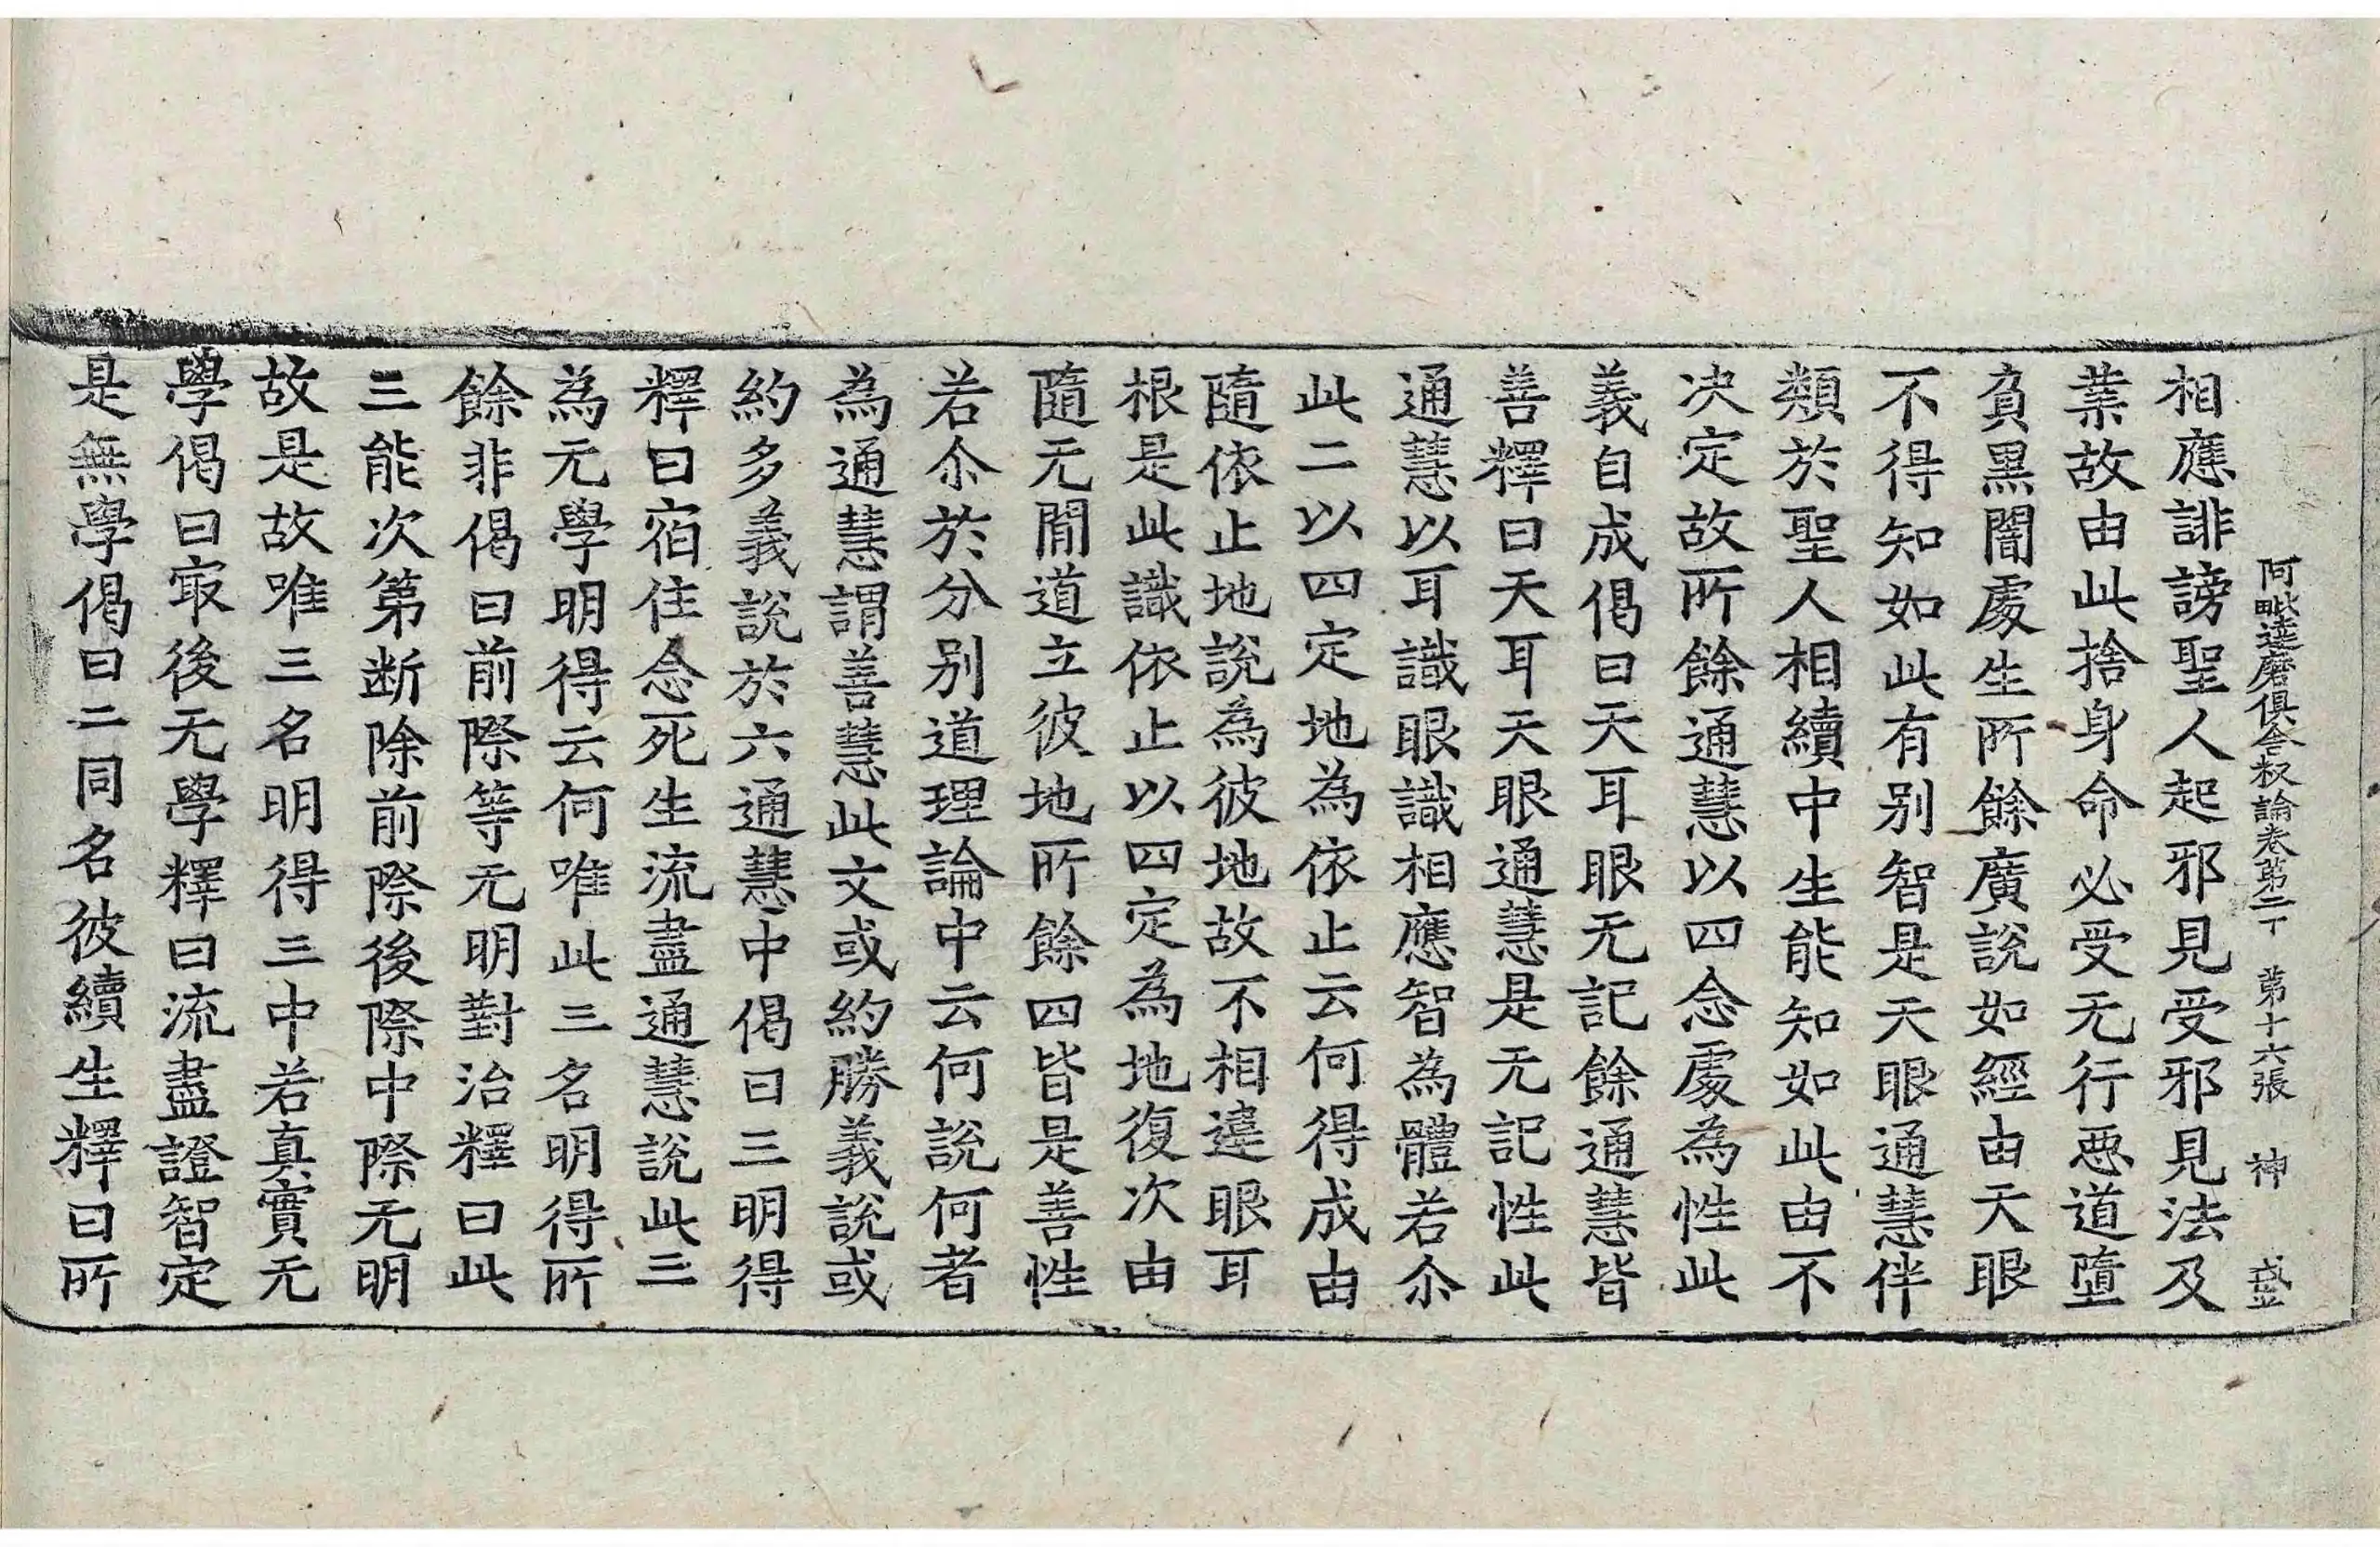 阿毗達磨俱舍釋論卷第二十　第十六張　神　盛
相應誹謗聖人起邪見受邪見法及
業故由此捨身命必受无行惡道墮
負黑闇處生所餘廣說如經由天眼
不得知如此有别智是天眼通慧伴
類於聖人相續中生能知如此由不
决定故所餘通慧以四念處為性此
義自成偈曰天耳眼无記餘通慧皆
善釋曰天耳天眼通慧是无記性此
通慧以耳識眼識相應智為體若尒
此二以四定地為依止云何得成由
隨依止地說為彼地故不相違眼耳
根是此識依止以四定為地復次由
隨无間道立彼地所餘四皆是善性
若尒於分别道理論中云何說何者
為通慧謂善慧此文或約勝義說或
約多義說於六通慧中偈曰三明得
釋曰宿住念死生流盡通慧說此三
為无學明得云何唯此三名明得所
餘非偈曰前際等无明對治釋曰此
三能次第断除前際後際中際无明
故是故唯三名明得三中若真實无
學偈曰㝡後无學釋曰流盡證智定
是無學偈曰二同名彼續生釋曰所